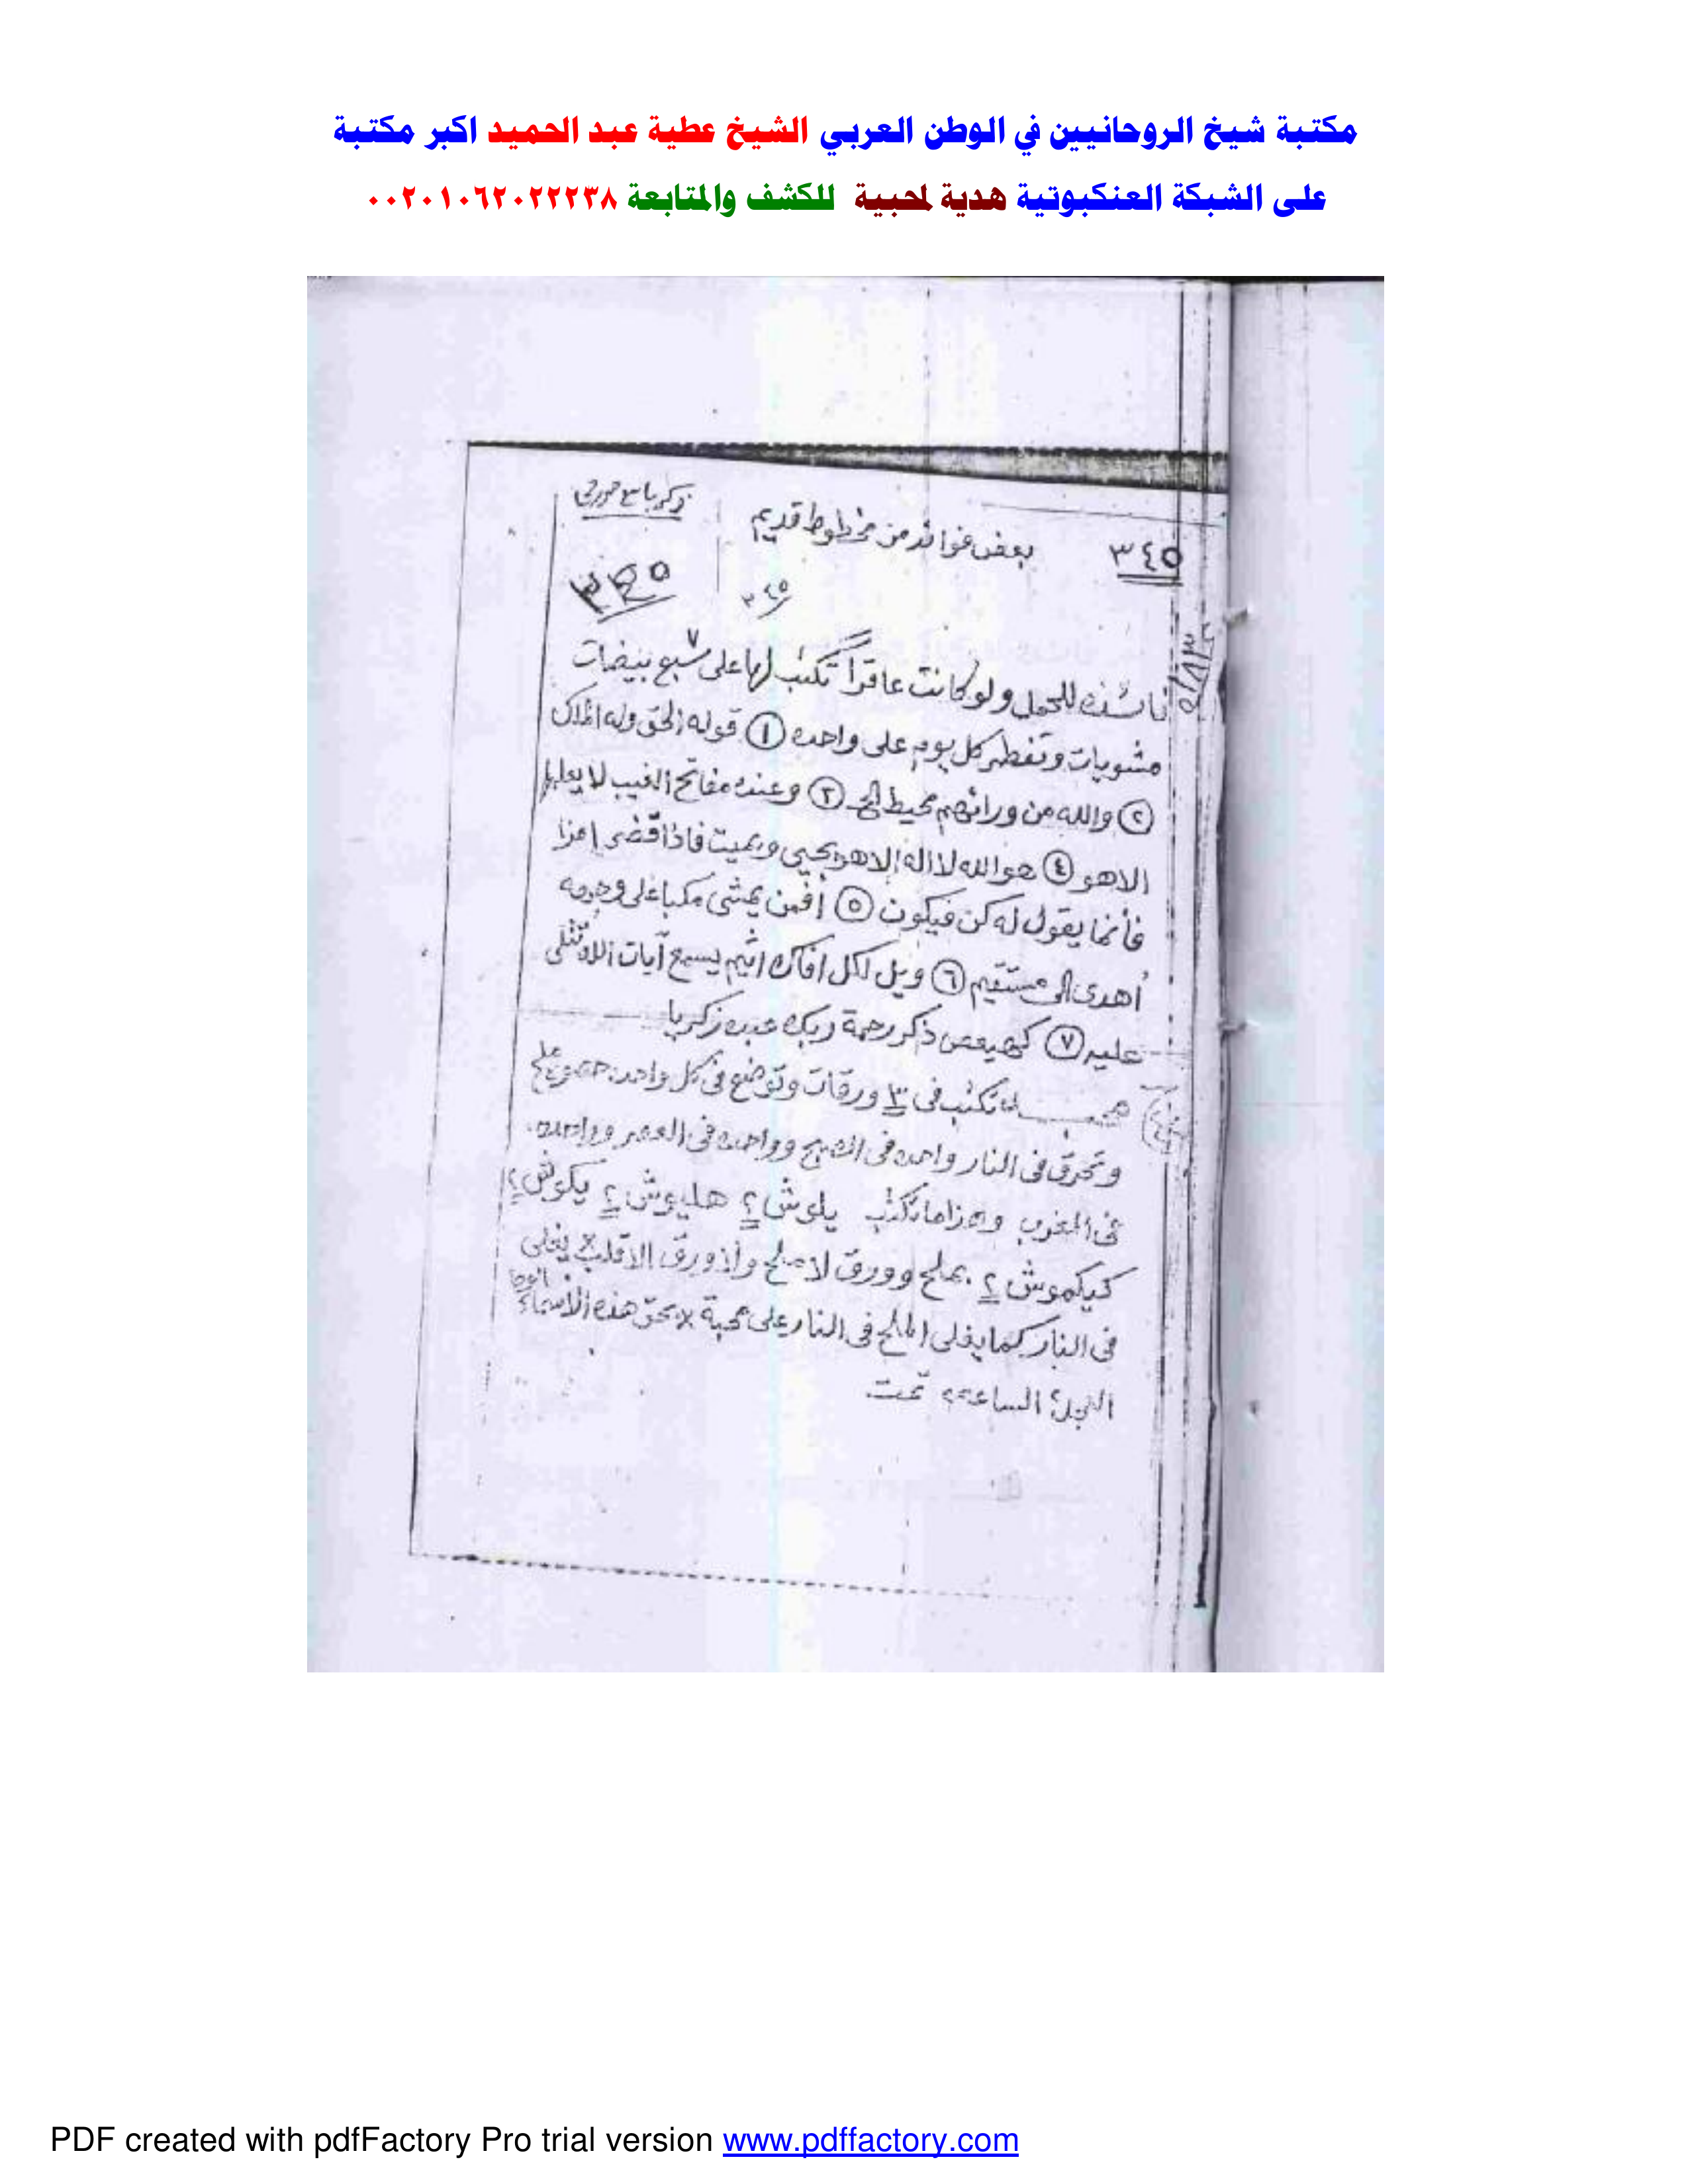 مكتبة شيخ الروحانيين في الوطن العربي الشيخ عطية عبد الحميد اكبر مكتبة
على الشبكة العنكبوتية هدية لمحبية للكشف والمتابعة ٠٠٢٠١٠٦٢٠٢٢٢٣٨
٣٤٥ بعض فوائد من مخطوط قديم
٣٤٥ ٣٤٥
للحمل ولو كانت عاقراً تكتب لها على سبع ٧ بيضات
مشويات وتفطر كل يوم على واحده ① قوله الحق وله الملك
② والله من ورائهم محيط الخ ③ وعنده مفاتح الغيب لا يعلمها
الا هو ④ هو الله لا اله الا هو يحيى ويميت فاذا قضى امرا
فأنما يقول له كن فيكون ⑤ أفمن يمشى مكبا على وجهه
أهدى الى مستقيم ⑥ ويل لكل افاك اثيم يسمع آيات الله تتلى
عليه ⑦ كهيعص ذكر رحمة ربك عبده زكريا
تكتب فى ٣ ورقات وتوضع فى كل واحده ملح
وتحرق فى النار واحده فى الصبح وواحده فى العصر وواحده
فى المغرب وهذا ما تكتب يلوش ٢ هليوش ٢ يكوش ٢
كيكموش ٢ بملح وورق لا ملح ولا ورق الا قلب × يغلى
فى النار كما يغلى الملح فى النار على محبة × بحق هذه الأسماء الوحا
العجل الساعة ٢ تمت
PDF created with pdfFactory Pro trial version www.pdffactory.com